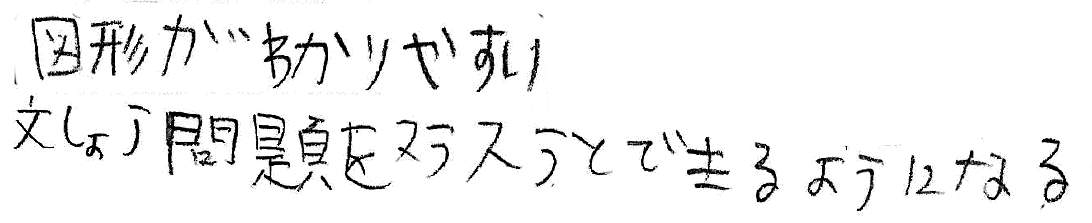 図形がわかりやすい
文しょう問題をスラスラとできるようになる